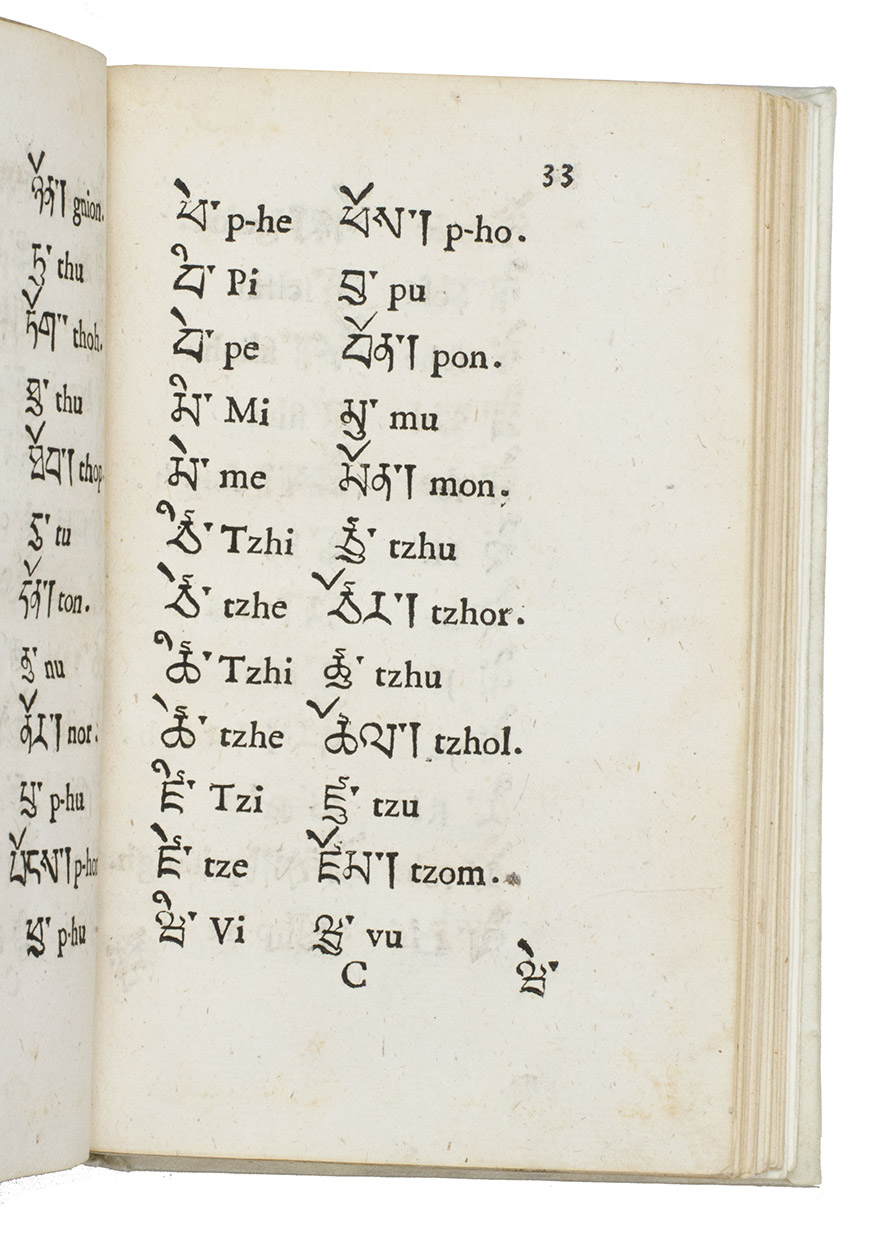 ཉོན། gnion.
ཏུ་ thu
ཏོག thoh.
ཐུ་ thu
ཐོབ། thop
དུ་ tu
དོན། ton.
ནུ་ nu
ནོར། nor.
པུ་ p-hu
ཕུ་ p-hu
33
ཕེ་ p-he ཕོས། p-ho.
བི་ Pi བུ་ pu
བེ་ pe བོན། pon.
མི་ Mi མུ་ mu
མེ་ me མོན། mon.
ཙི་ Tzhi ཙུ་ tzhu
ཙེ་ tzhe ཙོར། tzhor.
ཚི་ Tzhi ཚུ་ tzhu
ཚེ་ tzhe ཚོལ། tzhol.
ཛི་ Tzi ཛུ་ tzu
ཛེ་ tze ཛོམ། tzom.
ཝི་ Vi ཝུ་ vu
C ཝེ་